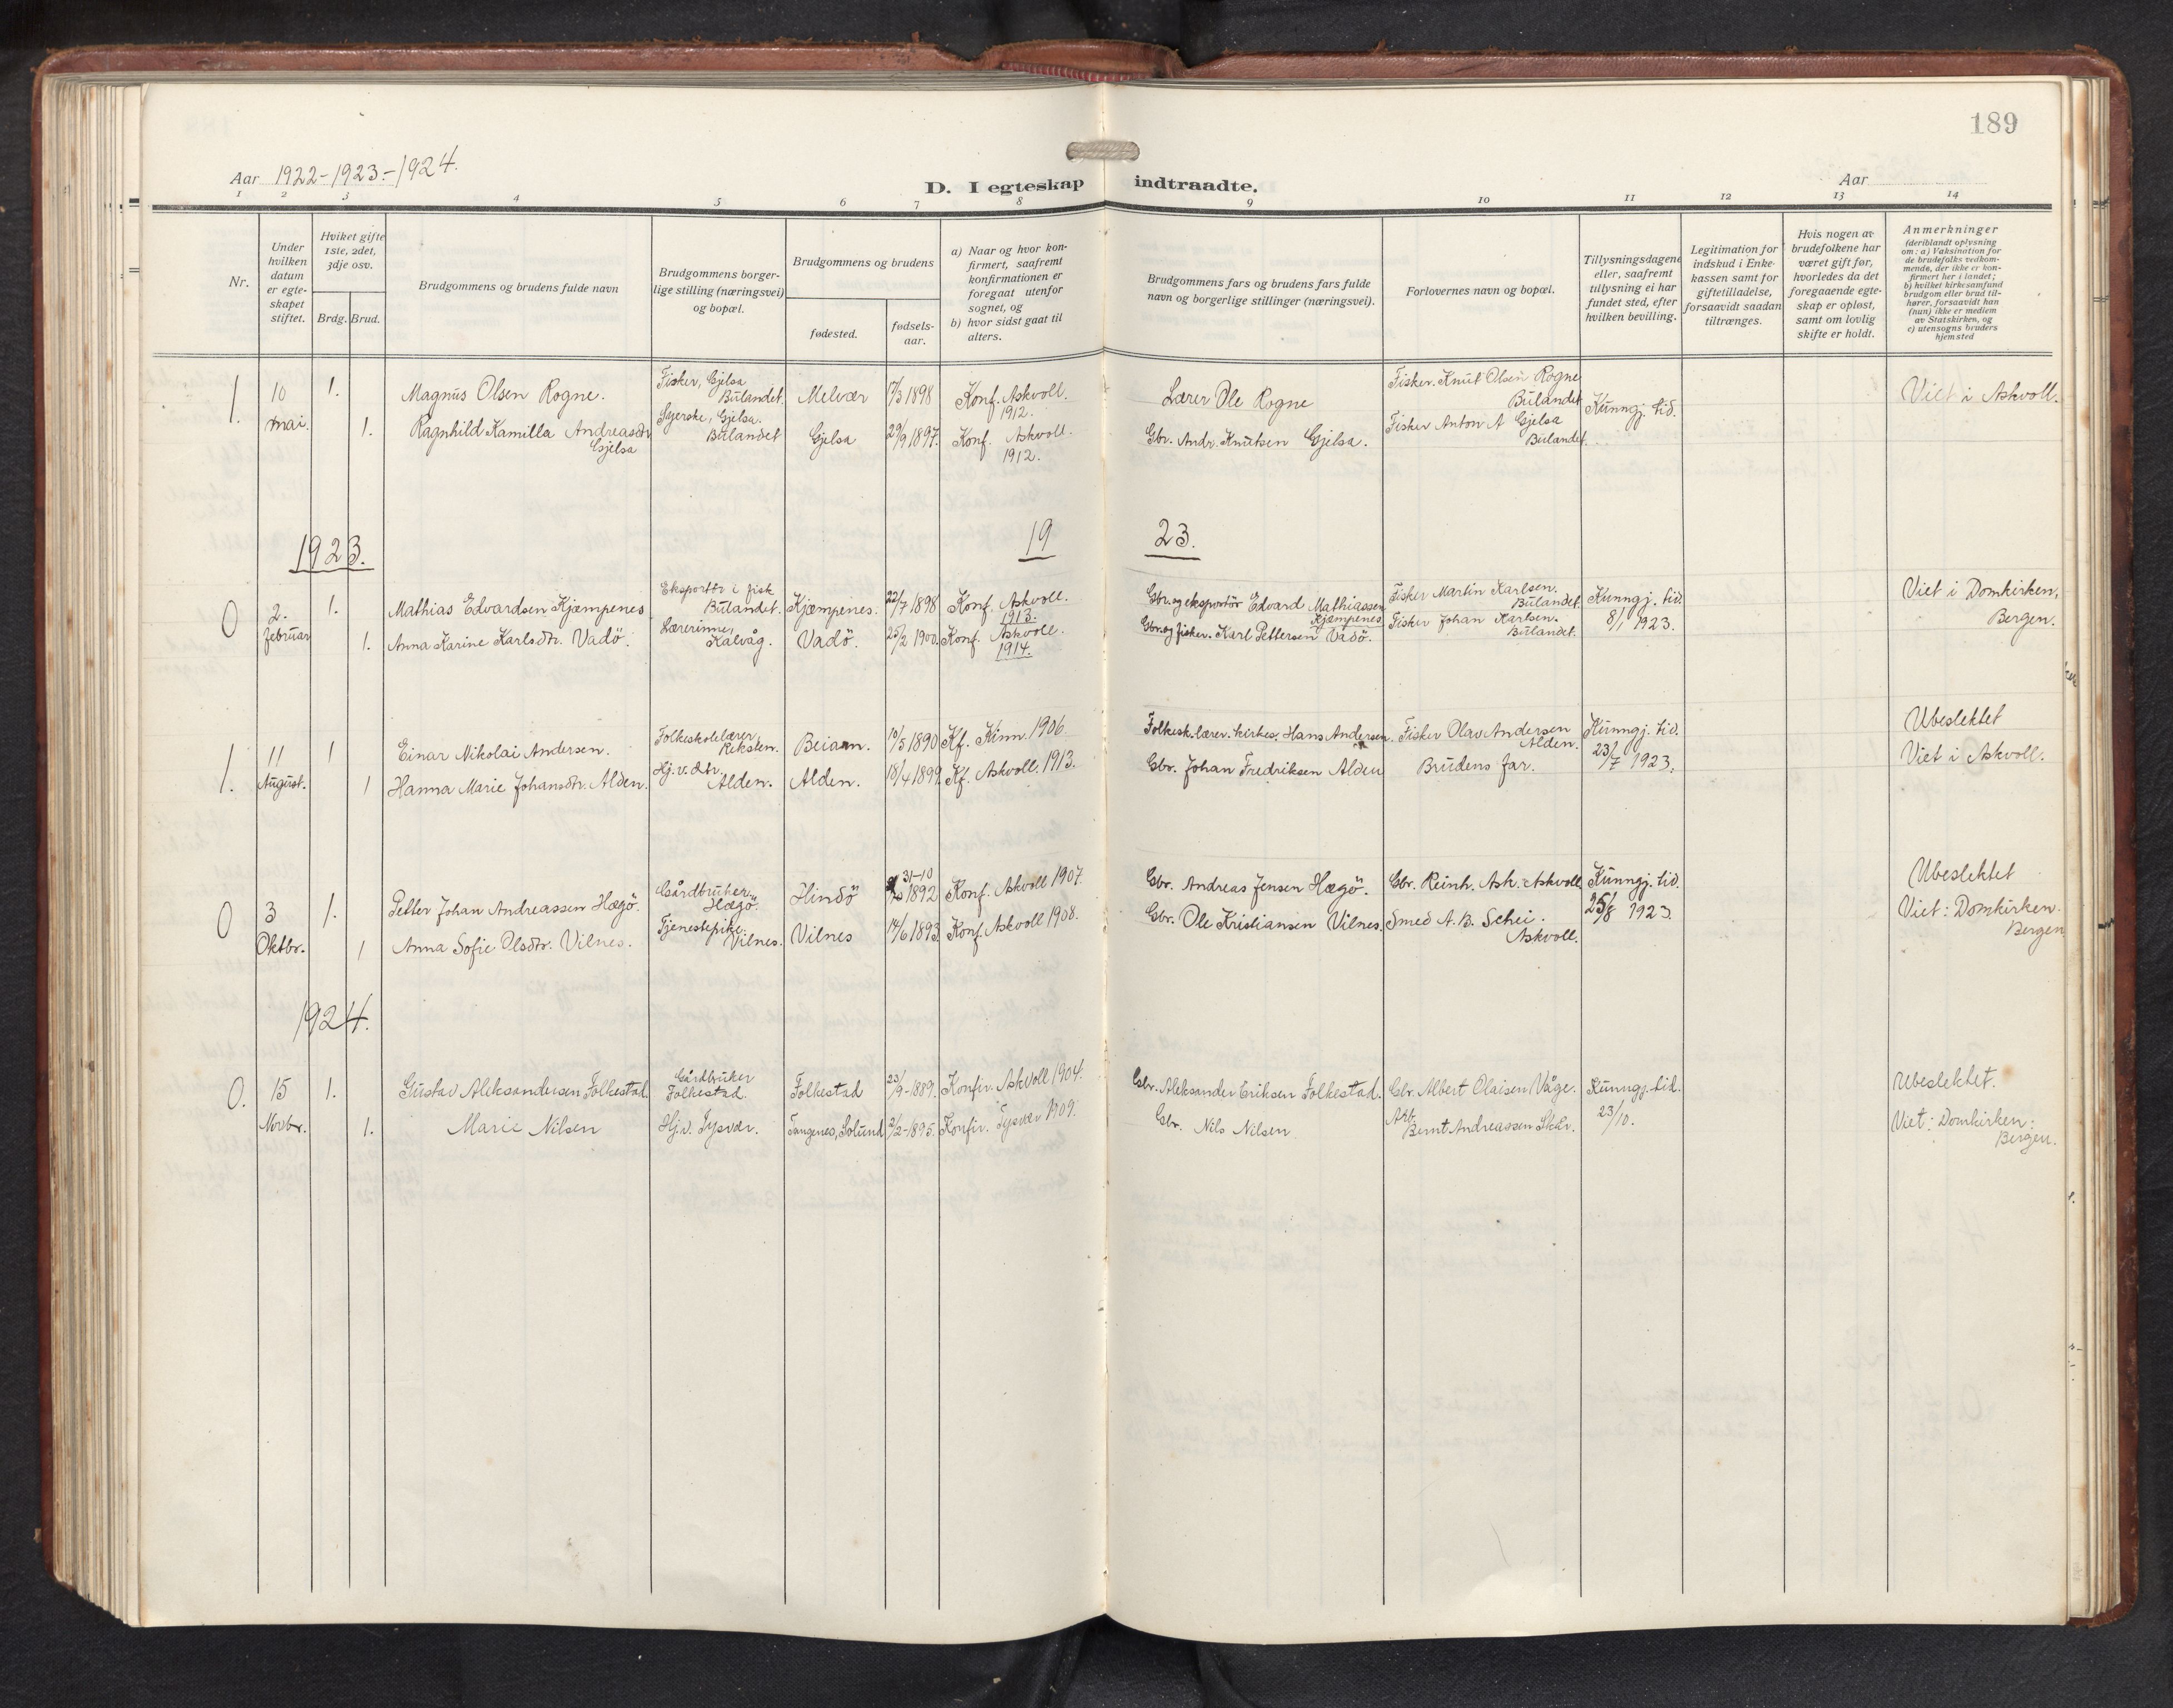 189
Aar 1922-1923.-1924.
D. I egteskap indtraadte.
Aar
1 2 3 4 5 6 7 8 9 10 11 12 13 14
Nr.
Under hvilken datum er egte-skapet stiftet.
Hvilket gifte 1ste, 2det, 3dje osv.
Brdg. Brud.
Brudgommens og brudens fulde navn
Brudgommens borger-lige stilling (næringsvei) og bopæl.
Brudgommens og brudens
fødested.
fødsels-aar.
a) Naar og hvor kon-firmert, saafremt konfirmationen er foregaat utenfor sognet, og
b) hvor sidst gaat til alters.
Brudgommens fars og brudens fars fulde navn og borgerlige stillinger (næringsvei).
Forlovernes navn og bopæl.
Tillysningsdagene eller, saafremt tillysning ei har fundet sted, efter hvilken bevilling.
Legitimation for indskud i Enke-kassen samt for giftetilladelse, forsaavidt saadan tiltrænges.
Hvis nogen av brudefolkene har været gift før, hvorledes da det foregaaende egte-skap er opløst, samt om lovlig skifte er holdt.
Anmerkninger
(deriblandt oplysning om: a) Vaksination for de brudefolks vedkom-mende, der ikke er kon-firmert her i landet; b) hvilket kirkesamfund brudgom eller brud til-hører, forsaavidt han (hun) ikke er medlem av Statskirken, og c) utensogns bruders hjemsted
1. 10 mai. 1. Magnus Olsen Rogne. Fisker, Gjelsa Bulandet. Melvær 17/3 1898 Konf. Askvoll. 1912. Lærer Ole Rogne Fisker Knut Olsen Rogne Bulandet Kunngj. tid. Viet i Askvoll.
1. Ragnhild Kamilla Andreasdtr Gjelsa Syerske, Gjelsa. Bulandet Gjelsa 29/9 1897. Konf. Askvoll. 1912. Gbr. Andr. Knutsen Gjelsa. Fisker Anton A Gjelsa Bulandet.
1923. 19 23.
0 2. februar 1. Mathias Edvardsen Kjæmpenes Eksportör i fisk Bulandet. Kjæmpenes. 22/7 1898 Konf. Askvoll. 1913. Gbr. og eksportör Edvard Mathiassen Kjæmpenes Fisker Martin Karlsen. Bulandet. Kunngj. tid. 8/1 1923. Viet i Domkirken, Bergen.
1. Anna Karine Karlsdtr. Vadö. Lærerinne, Kalvåg. Vadö. 25/2 1900. Konf. Askvoll. 1914. Gbr. og fisker. Karl Pettersen Vadö. Fisker Johan Karlsen. Bulandet.
1. 11 August. 1 Einar Nikolai Andersen. Folkeskolelærer, Reksten. Beiarn. 10/5 1890 Kf. Kinn 1906. Folkesk.lærer. kirkes. Hans Andersen. Fisker Olav Andersen Alden. Kunngj. tid. 23/7 1923. Ubeslektet Viet i Askvoll.
1 Hanna Marie Johansdtr. Alden. Hj. v. dtr, Alden. Alden. 18/4 1899 Kf. Askvoll. 1913. Gbr. Johan Fredriksen Alden Brudens far.
0 3 Oktbr. 1. Petter Johan Andreassen Hægö. Gårdbruker Hægö. Hindö 31-10 1892 Konf. Askvoll 1907. Gbr. Andreas Jensen Hægö. Gbr. Reinh. Ask. Askvoll Kunngj. tid. 25/8 1923. Ubeslektet Viet: Domkirken. Bergen
1 Anna Sofie Olsdtr. Vilnes. Tjenestepike. Vilnes. Vilnes 14/6 1893 Konf. Askvoll 1908. Gbr. Ole Kristiansen Vilnes. Smed A. B. Schei. Askvoll.
1924.
0. 15 Novbr. 1. Gustav Aleksandersen Folkestad. Gårdbruker Folkestad. Folkestad 23/9-1889. Konfir. Askvoll 1904. Gbr. Aleksander Eriksen Folkestad. Gbr. Albert Olaisen Våge. Kunngj. tid. 23/10. Ubeslektet. Viet: Domkirken: Bergen.
1. Marie Nilsen Hj. v. Tysvær. Tangenes, Solund 2/2-1895. Konfir. Tysvær 1909. Gbr. Nils Nilsen Arb. Bernt Andreassen Skår.